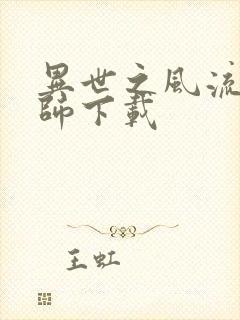 異世之風流
師下載
王虹